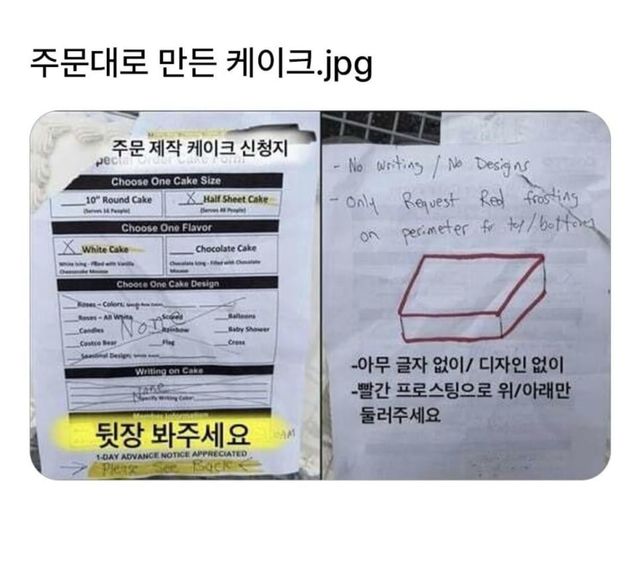 주문대로 만든 케이크.jpg
주문 제작 케이크 신청지
Choose One Cake Size
10" Round Cake
(Serves 16 People)
X Half Sheet Cake
(Serves 48 People)
Choose One Flavor
X White Cake
White Icing - Filled with Vanilla
Cheesecake Mousse
Chocolate Cake
Chocolate Icing - Filled with Chocolate
Mousse
Choose One Cake Design
Roses - Colors:
Roses - All White
Candles
Costco Bear
Seasonal Design:
Rainbow
Flag
Balloons
Baby Shower
Cross
None
Writing on Cake
None
Specify Writing Color:
Member Information
뒷장 봐주세요
1-DAY ADVANCE NOTICE APPRECIATED
Please See Back
- No writing / No Designs
- Only Request Red frosting
on perimeter for top/bottom
-아무 글자 없이/ 디자인 없이
-빨간 프로스팅으로 위/아래만
둘러주세요